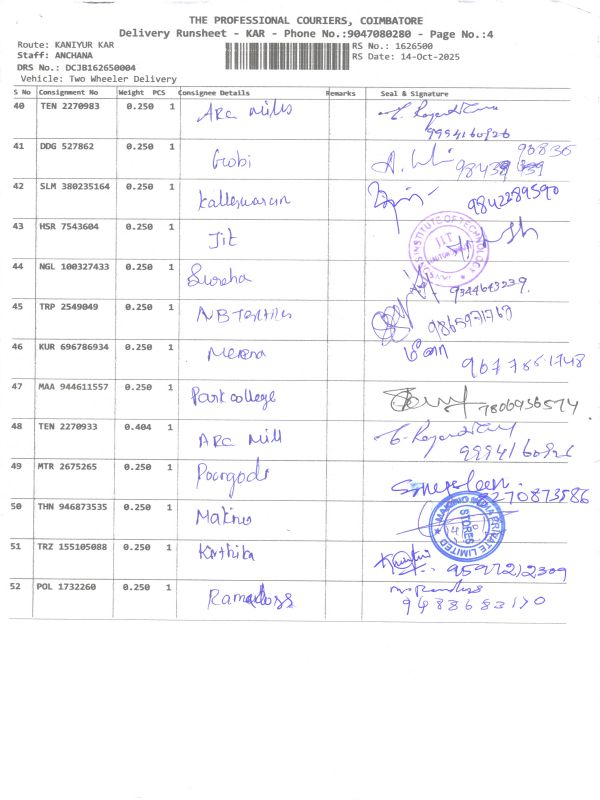 THE PROFESSIONAL COURIERS, COIMBATORE
Delivery Runsheet - KAR - Phone No.:9047080280 - Page No.:4
Route: KANIYUR KAR RS No.: 1626500
Staff: ANCHANA RS Date: 14-Oct-2025
DRS No.: DCJB162650004
Vehicle: Two Wheeler Delivery
S No Consignment No Weight PCS Consignee Details Remarks Seal & Signature
40 TEN 2270983 0.250 1 ARC Mills
9994160926
41 DDG 527862 0.250 1 Gobi
42 SLM 380235164 0.250 1 Kalleswaran 9842289590
43 HSR 7543604 0.250 1 Jit
INSTITUTE OF TECHNOLOGY
44 NGL 100327433 0.250 1 Surekha 9344643239
45 TRP 2549049 0.250 1 NB Textiles
46 KUR 696786934 0.250 1 Meena
47 MAA 944611557 0.250 1 Park college 7806936574
48 TEN 2270933 0.404 1 ARC Mill
9994160926
49 MTR 2675265 0.250 1
8270873586
50 THN 946873535 0.250 1
PRIVATE LIMITED
STORES
51 TRZ 155105088 0.250 1 Karthika 9597212309
52 POL 1732260 0.250 1 Ramadoss
9488683170